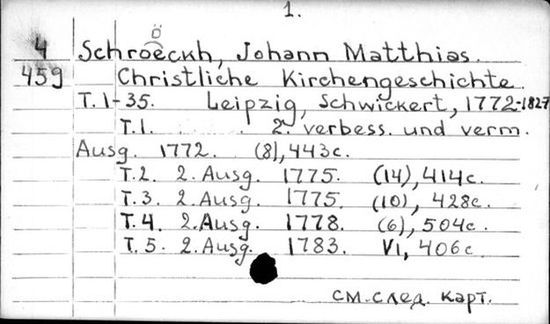 1.
ö
4 Schroeckh, Johann Matthias.
459 Christliche Kirchengeschichte.
T. 1-35. Leipzig, Schwickert, 1772-1827
T. 1. 2. verbess. und verm.
Ausg. 1772. (8), 443с.
T. 2. 2. Ausg. 1775. (14), 414с.
T. 3. 2. Ausg. 1775. (10), 428с.
T. 4. 2. Ausg. 1778. (6), 504с.
T. 5. 2. Ausg. 1783. VI, 406с
см. след. карт.